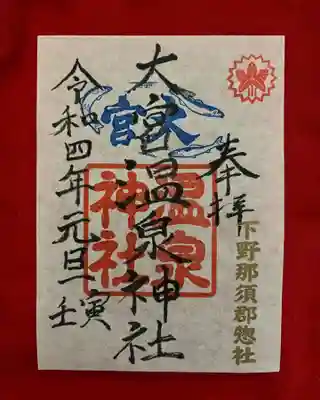 奉拝
下野那須郡惣社
大宮温泉神社
大宮
温泉
神社
令和四年元旦
壬寅